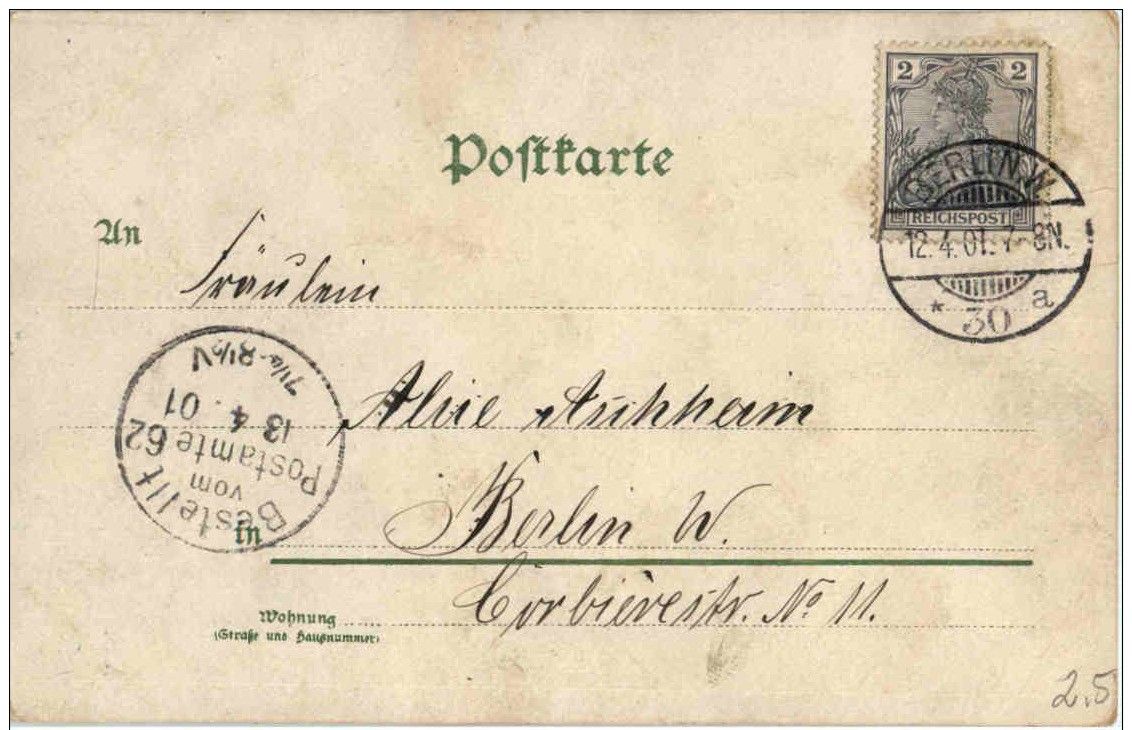 2 2
REICHSPOST
BERLIN.W.
12.4.01.7-8N.
* 30 a
Postkarte
An
Fräulein
Alice
Berlin W.
in
Corbièrestr. No 11.
Wohnung
(Straße und Hausnummer)
Bestellt
vom
Postamte 62
13 4. 01
7 1/4-8 1/2 V
2.5